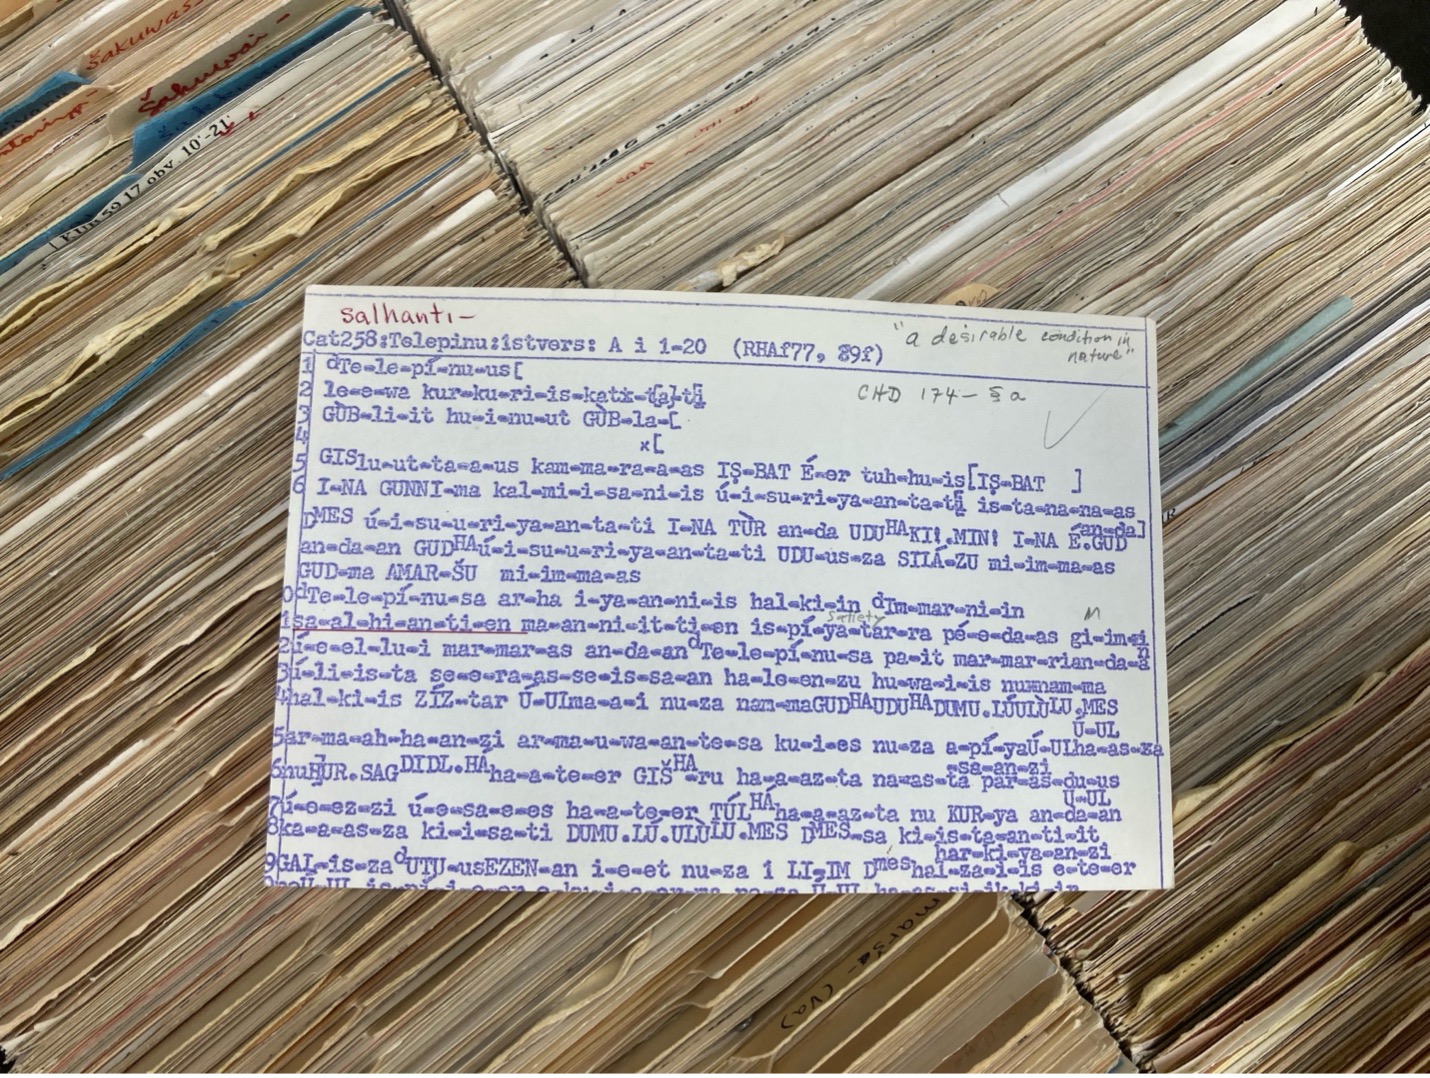 šakuwas-
šakuwai-
KUB 59 17 obv. 10'-21'
salhanti-
"a desirable condition in
nature"
Cat258:Telepinu:1stvers: A i 1-20 (RHAf77, 89f)
CHD 174- § a
1 dTe-le-pí-nu-us[
2 le-e-wa kur-ku-ri-is-katx-t[a]-ti
3 GÙB-li-it hu-i-nu-ut GÙB-la-[
4 x[
5 GISlu-ut-ta-a-us kam-ma-ra-a-as IṢ-BAT É-er tuh-hu-is[IṢ-BAT ]
6 I-NA GUNNI-ma kal-mi-i-sa-ni-is ú-i-su-ri-ya-an-ta-ti is-ta-na-na-as
an-da]
DMES ú-i-su-u-ri-ya-an-ta-ti I-NA TÙR an-da UDUHAKI!.MIN! I-NA É.GUD
an-da-an GUDHAú-i-su-u-ri-ya-an-ta-ti UDU-us-za SILÁ-ZU mi-im-ma-as
GUD-ma AMAR-ŠU mi-im-ma-as
0dTe-le-pí-nu-sa ar-ha i-ya-an-ni-is hal-ki-in dIm-mar-ni-in
satiety M
1sa-al-hi-an-ti-en ma-an-ni-it-ti-en is-pí-ya-tar-ra pé-e-da-as gi-im-ri
2ú-e-el-lu-i mar-mar-as an-da-an dTe-le-pí-nu-sa pa-it mar-mar-rian-da-an
3ú-li-is-ta se-e-ra-as-se-is-sa-an ha-le-en-zu hu-wa-i-is nu=nam-ma
4hal-ki-is ZÍZ-tar Ú-ULma-a-i nu-za nam-maGUDHAUDUHADUMU.LÚULÙLU.MES
Ú-UL
5ar-ma-ah-ha-an-zi ar-ma-u-wa-an-te-sa ku-i-es nu-za a-pí-yaÚ-ULha-as-za
-sa-an-zi
6nuHUR.SAGDIDL.HÁha-a-te-er GIŠHA-ru ha-a-az-ta na-as-ta par-as-du-us
Ú-UL
7ú-e-ez-zi ú-e-sa-e-es ha-a-te-er TÚLHÁha-a-az-ta nu KUR-ya an-da-an
8ka-a-as-za ki-i-sa-ti DUMU.LÚ.ULÙLU.MES DMES-sa ki-is-ta-an-ti-it
har-ki-ya-an-zi
9GAL-is-zadUTU-usEZEN-an i-e-et nu-za 1 LI-IM Dmeshal-za-i-is e-te-er
marša- (Va)